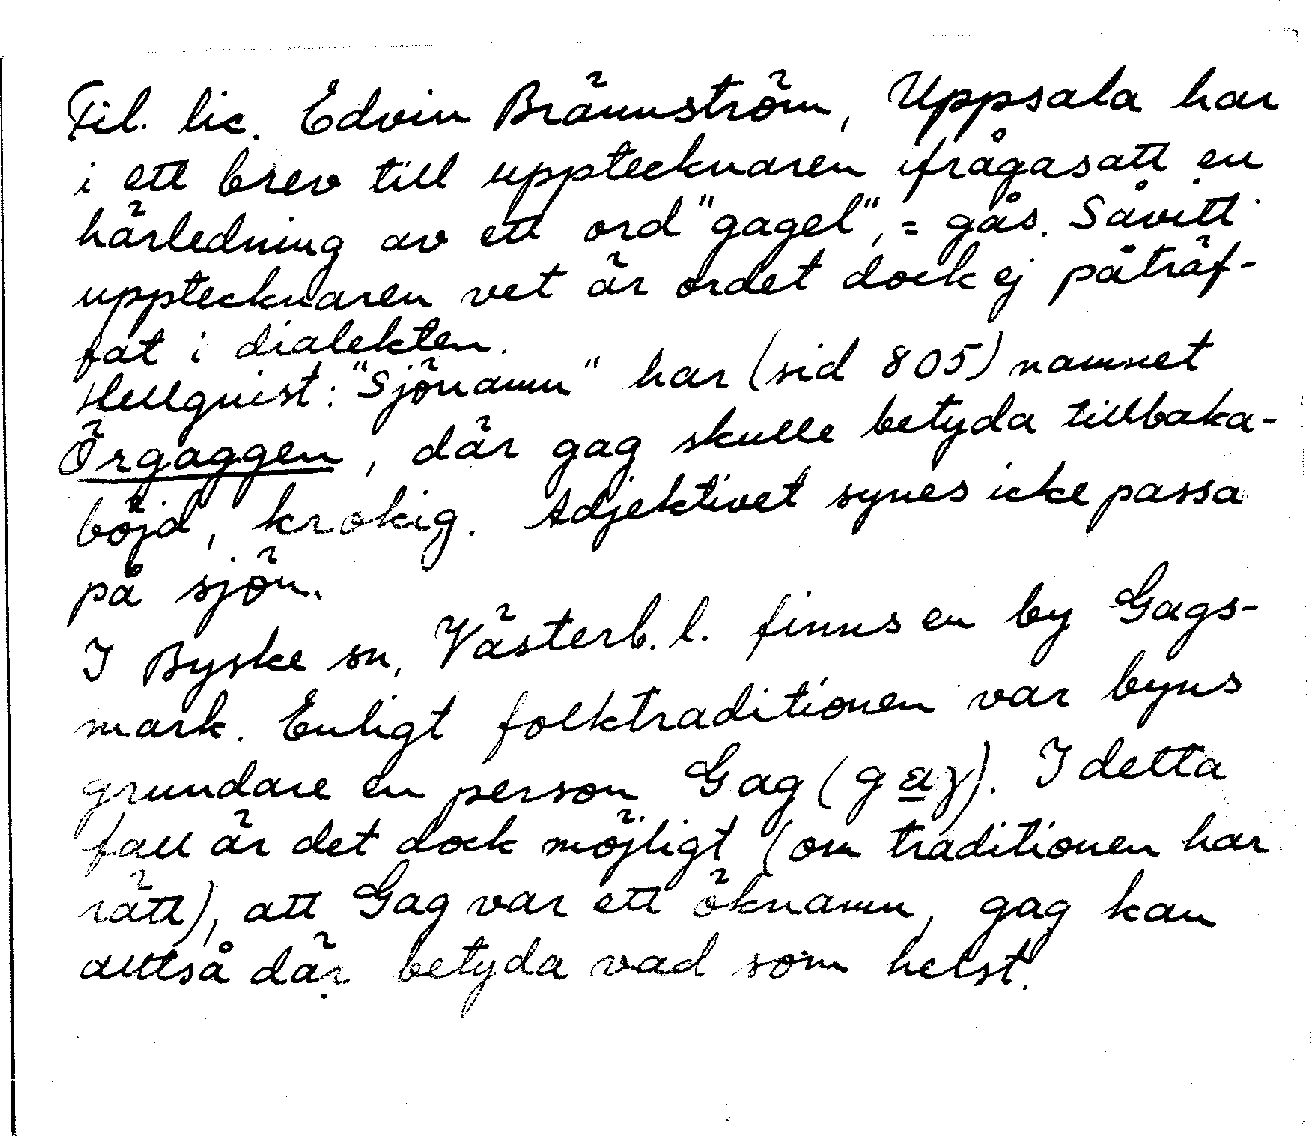 Fil. lic. Edvin Brännström, Uppsala har
i ett brev till upptecknaren ifrågasatt en
härledning av ett ord "gagel", = gås. Såvitt
upptecknaren vet är ordet dock ej påträf-
fat i dialekten.
Hellquist: "Sjönamn" har (sid 805) namnet
Örgaggen, där gag skulle betyda tillbaka-
böjd, krokig. Adjektivet synes icke passa
på sjön.
I Byske sn, Västerb. l. finns en by Gags-
mark. Enligt folktraditionen var byns
grundare en person Gag (gaɣ). I detta
fall är det dock möjligt (om traditionen har
rätt), att Gag var ett öknamn, gag kan
alltså där betyda vad som helst.